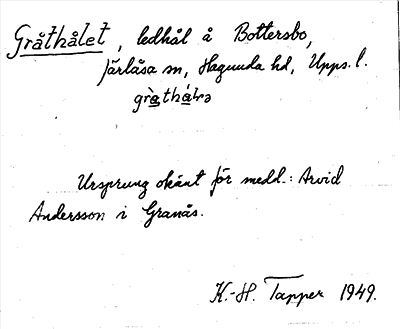 Gråthålet, ledhål å Bottersbo,
Järlåsa sn, Hagunda hd, Upps. l.
Ursprung okänt för medd.: Arvid
Andersson i Granås.
K.-H. Tapper 1949.